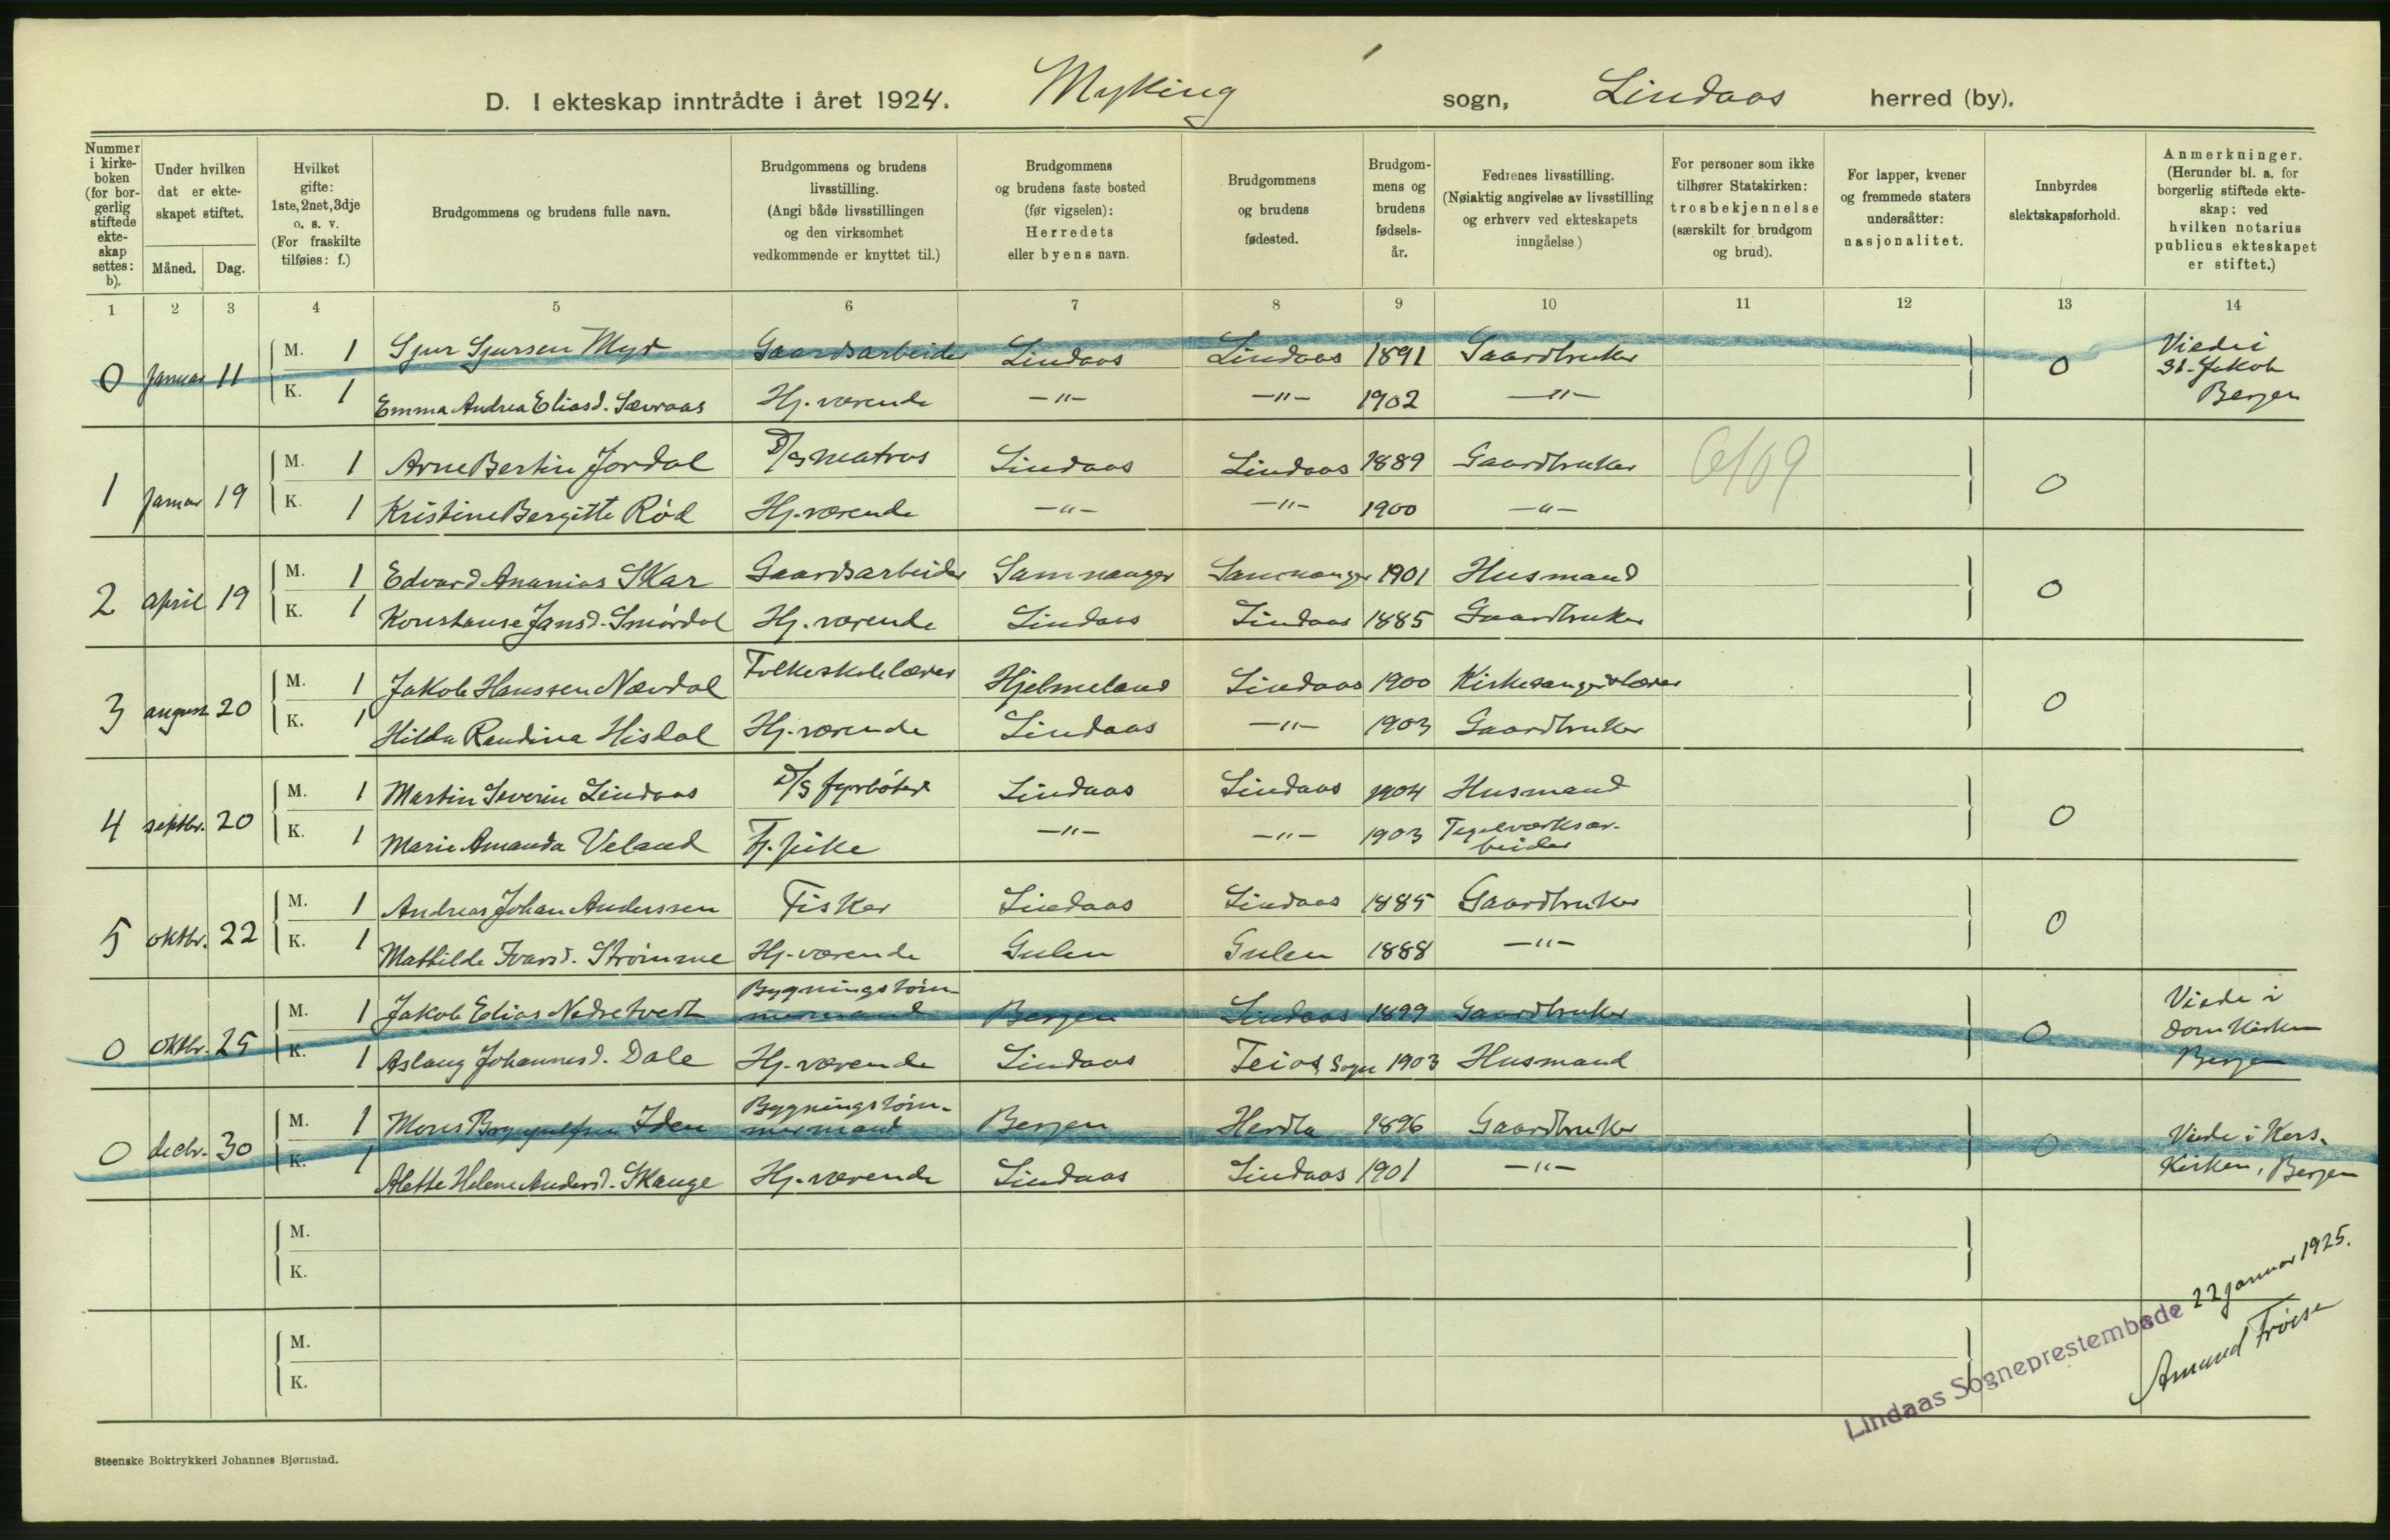 D. I ekteskap inntrådte i året 1924. Myking sogn, Lindaas herred (by).
Nummer i kirkeboken (for borgerlig stiftede ekteskap settes: b).
Under hvilken dat er ekteskapet stiftet.
Måned. Dag.
Hvilket gifte: 1ste, 2net, 3dje o. s. v. (For fraskilte tilføies: f.)
Brudgommens og brudens fulle navn.
Brudgommens og brudens livsstilling. (Angi både livsstillingen og den virksomhet vedkommende er knyttet til.)
Brudgommens og brudens faste bosted (før vigselen): Herredets eller byens navn.
Brudgommens og brudens fødested.
Brudgommens og brudens fødselsår.
Fedrenes livsstilling. (Nøiaktig angivelse av livsstilling og erhverv ved ekteskapets inngåelse.)
For personer som ikke tilhører Statskirken: trosbekjennelse (særskilt for brudgom og brud).
For lapper, kvener og fremmede staters undersåtter: nasjonalitet.
Innbyrdes slektskapsforhold.
Anmerkninger. (Herunder bl. a. for borgerlig stiftede ekteskap: ved hvilken notarius publicus ekteskapet er stiftet.)
1 2 3 4 5 6 7 8 9 10 11 12 13 14
0 Januar 11 M. 1 Sjur Sjursen Myr Gaardsarbeider Lindaas Lindaas 1891 Gaardbruker 0 Viede i St. Jakob Bergen
K. 1 Emma Andrea Eliasd. Sævraas Hj. værende -"- -"- 1902 -"-
1 Januar 19 M. 1 Arne Bertin Jordal D/S matros Lindaas Lindaas 1889 Gaardbruker 0
K. 1 Kristine Bergitte Rød Hj. værende -"- -"- 1900 -"-
2 april 19 M. 1 Edvard Ananias Skar Gaardsarbeider Samnanger Samnanger 1901 Husmand 0
K. 1 Konstanse Jansd. Smørdal Hj. værende Lindaas Lindaas 1885 Gaardbruker
3 august 20 M. 1 Jakob Hanssen Nævdal Folkeskolelærer Hjelmeland Lindaas 1900 Kirkesanger & lærer 0
K. 1 Hilda Randina Hisdal Hj. værende Lindaas -"- 1903 Gaardbruker
4 septbr. 20 M. 1 Martin Severin Lindaas D/S fyrbøter Lindaas Lindaas 1904 Husmand 0
K. 1 Marie Amanda Veland Tj. pike -"- -"- 1903 Tegelverksarbeider
5 oktbr. 22 M. 1 Andreas Johan Anderssen Fisker Lindaas Lindaas 1885 Gaardbruker 0
K. 1 Mathilde Ivarsd. Strømme Hj. værende Gulen Gulen 1888 -"-
0 oktbr. 25 M. 1 Jakob Elias Nedretvedt Bygningstømmermand Bergen Lindaas 1899 Gaardbruker 0 Viede i Domkirken Bergen
K. 1 Aslaug Johannesd. Dale Hj. værende Lindaas Feios, Sogn 1903 Husmand
0 decbr. 30 M. 1 Mons Brynjulfsen Iden Bygningstømmermand Bergen Herdla 1896 Gaardbruker 0 Viede i Korskirken, Bergen
K. 1 Alette Helene Andersd. Skauge Hj. værende Lindaas Lindaas 1901 -"-
M.
K.
M.
K.
Lindaas Sogneprestembede 22 januar 1925.
Amund
Steenske Boktrykkeri Johannes Bjørnstad.